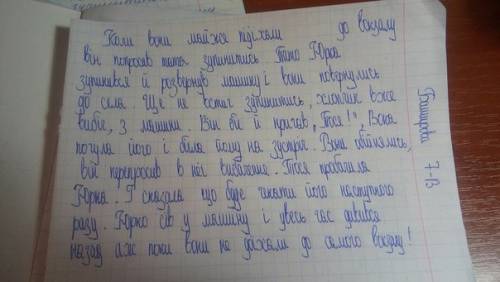 Коли вони майже підіхали до вокзалу
він попросив тата зупинитись. Тато Юрка
зупинився й розвернув машину і вони повернулись
до села. Ще не встиг зупинитись, хлопчик вже
вибіг, з машини. Він біг й кричав, "Тося!", Вона
почула його і бігла йому на зустріч. Вони обійнялись,
він перепросив в неї вибачення. Тося пробачила
Юрка. І сказала що буде чекати його наступного
разу. Юрко сів у машину і увесь час дивився
назад аж поки вони не доїхали до самого вокзалу!
Баширова
7-В